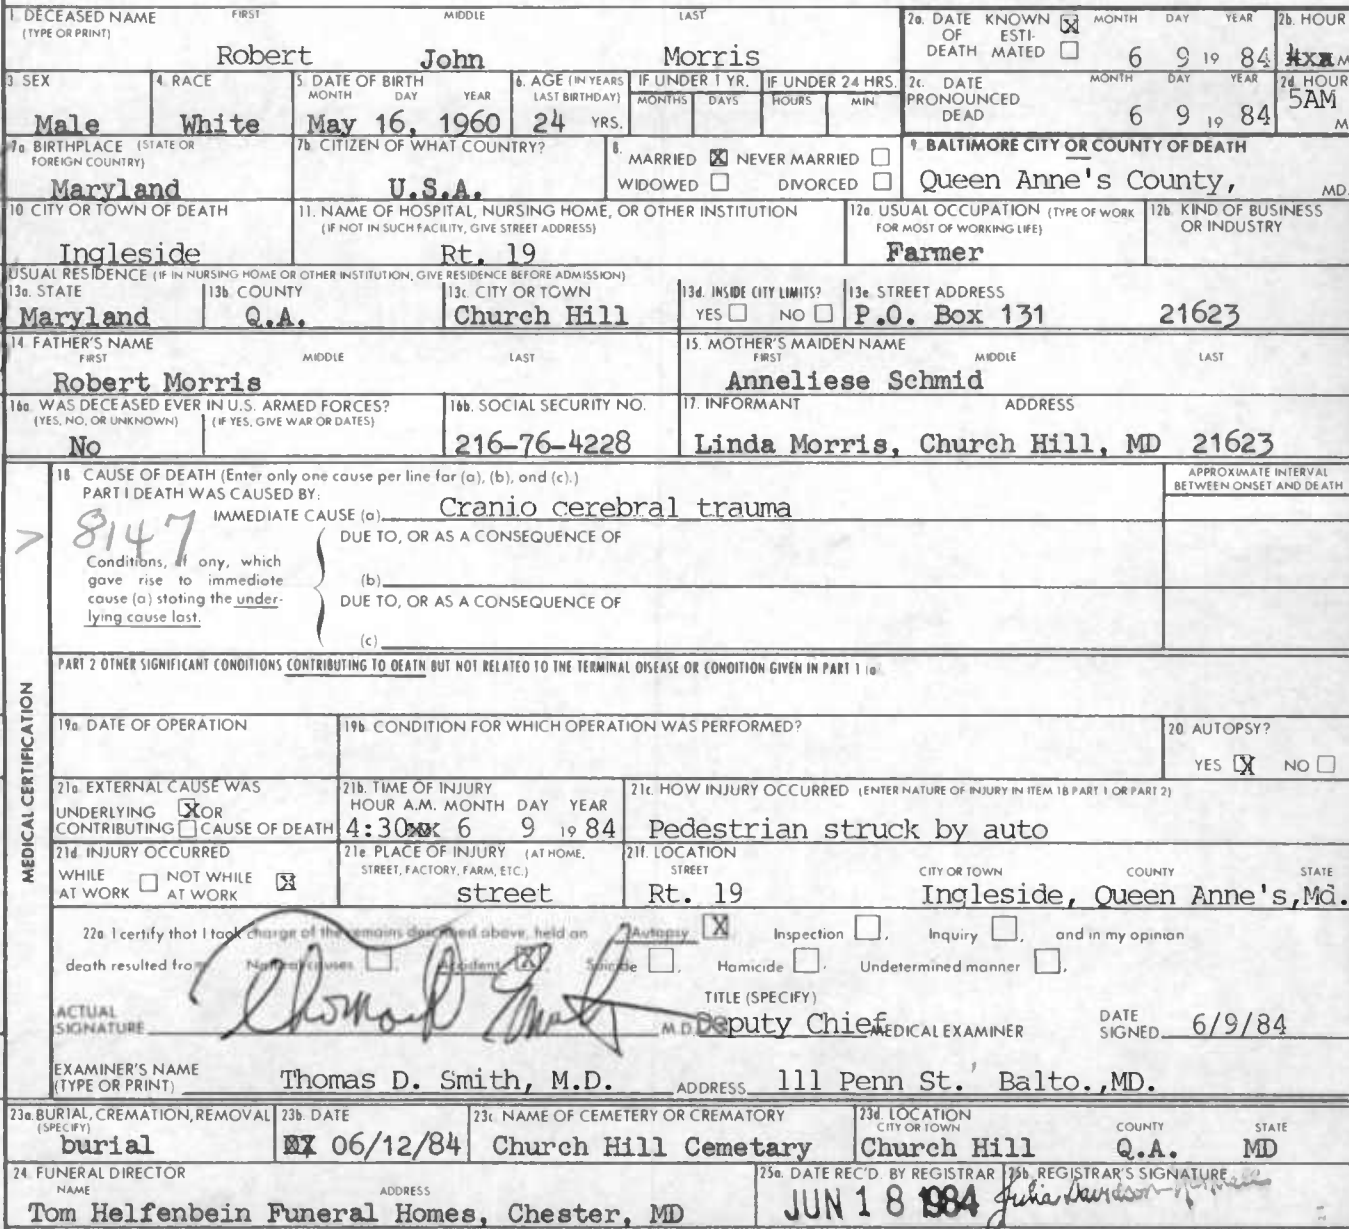 1 DECEASED NAME FIRST MIDDLE LAST
(TYPE OR PRINT)
Robert John Morris
2a. DATE KNOWN X MONTH DAY YEAR
OF ESTI-
DEATH MATED 6 9 19 84
2b. HOUR
M
3 SEX
Male
4. RACE
White
5. DATE OF BIRTH
MONTH DAY YEAR
May 16, 1960
6. AGE (IN YEARS
LAST BIRTHDAY)
24 YRS.
IF UNDER 1 YR.
MONTHS DAYS
IF UNDER 24 HRS.
HOURS MIN
2c. DATE MONTH DAY YEAR
PRONOUNCED
DEAD 6 9 19 84
2d. HOUR
5AM
M
7a BIRTHPLACE (STATE OR
FOREIGN COUNTRY)
Maryland
7b. CITIZEN OF WHAT COUNTRY?
U.S.A.
8.
MARRIED X NEVER MARRIED
WIDOWED DIVORCED
9. BALTIMORE CITY OR COUNTY OF DEATH
Queen Anne's County, MD.
10 CITY OR TOWN OF DEATH
Ingleside
11. NAME OF HOSPITAL, NURSING HOME, OR OTHER INSTITUTION
(IF NOT IN SUCH FACILITY, GIVE STREET ADDRESS)
Rt. 19
12a. USUAL OCCUPATION (TYPE OF WORK
FOR MOST OF WORKING LIFE)
Farmer
12b. KIND OF BUSINESS
OR INDUSTRY
USUAL RESIDENCE (IF IN NURSING HOME OR OTHER INSTITUTION, GIVE RESIDENCE BEFORE ADMISSION)
13a. STATE
Maryland
13b. COUNTY
Q.A.
13c. CITY OR TOWN
Church Hill
13d. INSIDE CITY LIMITS?
YES NO
13e STREET ADDRESS
P.O. Box 131 21623
14. FATHER'S NAME
FIRST MIDDLE LAST
Robert Morris
15. MOTHER'S MAIDEN NAME
FIRST MIDDLE LAST
Anneliese Schmid
16a. WAS DECEASED EVER IN U.S. ARMED FORCES?
(YES, NO, OR UNKNOWN) (IF YES, GIVE WAR OR DATES)
No
16b. SOCIAL SECURITY NO.
216-76-4228
17. INFORMANT ADDRESS
Linda Morris, Church Hill, MD 21623
MEDICAL CERTIFICATION
18. CAUSE OF DEATH (Enter only one cause per line for (a), (b), and (c).)
PART I DEATH WAS CAUSED BY:
IMMEDIATE CAUSE (a) Cranio cerebral trauma
APPROXIMATE INTERVAL
BETWEEN ONSET AND DEATH
> 8147
Conditions, if any, which
gave rise to immediate
cause (a) stating the under-
lying cause last.
DUE TO, OR AS A CONSEQUENCE OF
(b)
DUE TO, OR AS A CONSEQUENCE OF
(c)
PART 2 OTHER SIGNIFICANT CONDITIONS CONTRIBUTING TO DEATH BUT NOT RELATED TO THE TERMINAL DISEASE OR CONDITION GIVEN IN PART 1 (a)
19a. DATE OF OPERATION
19b. CONDITION FOR WHICH OPERATION WAS PERFORMED?
20 AUTOPSY?
YES X NO
21a. EXTERNAL CAUSE WAS
UNDERLYING X OR
CONTRIBUTING CAUSE OF DEATH
21b. TIME OF INJURY
HOUR A.M. MONTH DAY YEAR
4:30xx 6 9 19 84
21c. HOW INJURY OCCURRED (ENTER NATURE OF INJURY IN ITEM 18 PART 1 OR PART 2)
Pedestrian struck by auto
21d. INJURY OCCURRED
WHILE NOT WHILE X
AT WORK AT WORK
21e PLACE OF INJURY (AT HOME,
STREET, FACTORY, FARM, ETC.)
street
21f. LOCATION
STREET CITY OR TOWN COUNTY STATE
Rt. 19 Ingleside, Queen Anne's, Md.
22a. I certify that I took charge of the remains described above, held an Autopsy X, Inspection, Inquiry, and in my opinion
death resulted from Natural causes, Accident X, Suicide, Homicide, Undetermined manner,
ACTUAL
SIGNATURE Thomas D Smith M.D.
TITLE (SPECIFY)
Deputy Chief MEDICAL EXAMINER
DATE
SIGNED 6/9/84
EXAMINER'S NAME
(TYPE OR PRINT) Thomas D. Smith, M.D. ADDRESS 111 Penn St. Balto.,MD.
23a. BURIAL, CREMATION, REMOVAL
(SPECIFY)
burial
23b. DATE
06/12/84
23c. NAME OF CEMETERY OR CREMATORY
Church Hill Cemetary
23d. LOCATION
CITY OR TOWN COUNTY STATE
Church Hill Q.A. MD
24. FUNERAL DIRECTOR
NAME ADDRESS
Tom Helfenbein Funeral Homes, Chester, MD
25a. DATE REC'D. BY REGISTRAR
JUN 18 1984
25b. REGISTRAR'S SIGNATURE
Julia Davidson